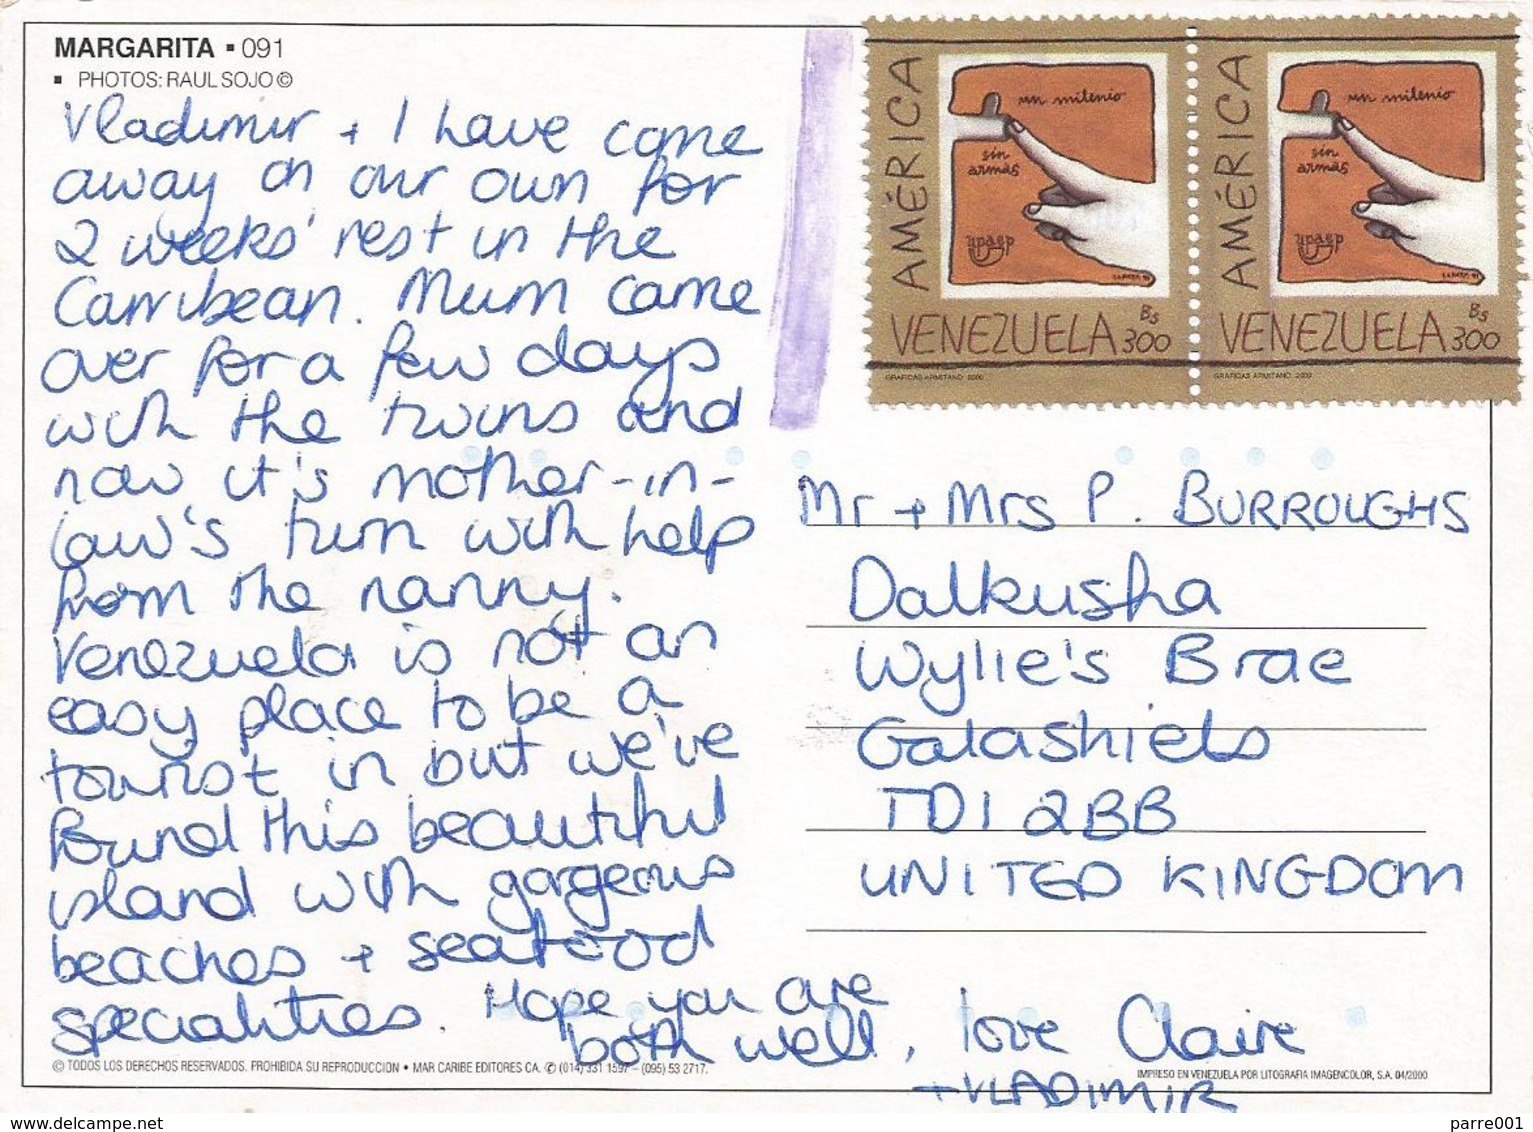 MARGARITA ▪ 091
▪ PHOTOS: RAUL SOJO ©
Vladimir + I have come
away on our own for
2 weeks' rest in the
Carribean. Mum came
over for a few days
with the twins and
now it's mother-in-
law's turn with help
from the nanny.
Venezuela is not an
easy place to be a
tourist in but we've
found this beautiful
island with gorgeous
beaches + seafood
specialities. Hope you are
both well, love Claire
+ VLADIMIR
© TODOS LOS DERECHOS RESERVADOS. PROHIBIDA SU REPRODUCCION • MAR CARIBE EDITORES CA. ✆ (014) 331 1597 – (095) 53 2717.
IMPRESO EN VENEZUELA POR LITOGRAFIA IMAGENCOLOR, S.A. 04/2000
AMÉRICA
un milenio
sin
armas
upaep
VENEZUELA Bs 300
GRAFICAS ARMITANO 2000
AMÉRICA
un milenio
sin
armas
upaep
VENEZUELA Bs 300
GRAFICAS ARMITANO 2000
Mr + Mrs P. BURROUGHS
Dalkusha
Wylie's Brae
Galashiels
TD1 2BB
UNITED KINGDOM
www.delcampe.net
parre001